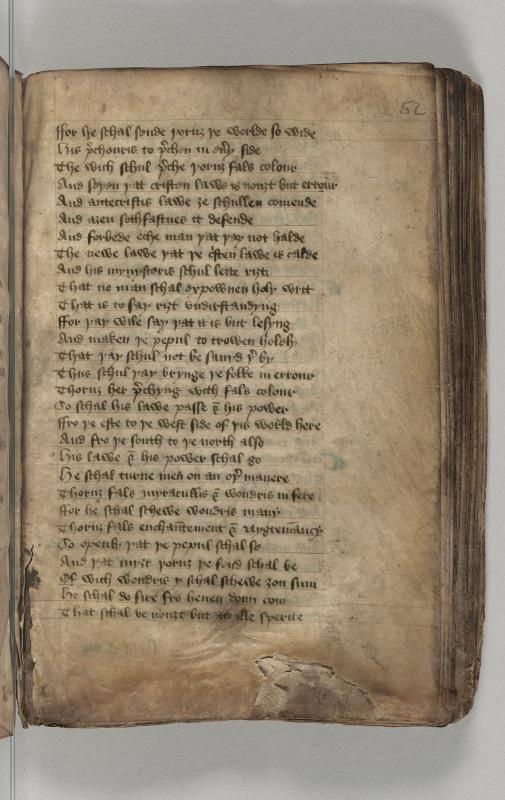 52
ffor he schal sende þoruȝ þe werlde so wide
His p̉chouris to p̉chen in eủy side
The wich schul p̉che þoruȝ fals colour
And seyen þat cristen lawe is nouȝt but errour
And antecristis lawe ȝe schullen comende
And aȝen sothfastnes it defende
And forbede eche man þat þay not halde
The newe lawe þat þe c̉sten lawe is calde
And his mynystoris schul lette riȝt
That no man schal expownen holy writ
That is to say riȝt vndirstandyng
ffor þay wile say þat it is but lesyng
And maken þe pepul to trowen hololy
That þay schul not be sauyd þ̉ by
Thus schul þay brynge þe folke in errour
Thoruȝ her p̉chyng with fals colour
So schal his lawe passe & his power
ffro þe este to þe west side of þis world here
And fro þe south to þe north also
His lawe & his power schal go
He schal turne men on an oþ̉ manere
Thoruȝ fals myracullis & wondris in fere
ffor he schal schewe wondris many
Thoruȝ fals enchauntement &
So openly þat þe pepul schal se
And þat myȝt þoruȝ þe fend schal be
Of wich wondris y schal schewe ȝou sum
He schal do fire fro heuen doun com
That schal be nouȝt but ille sperite